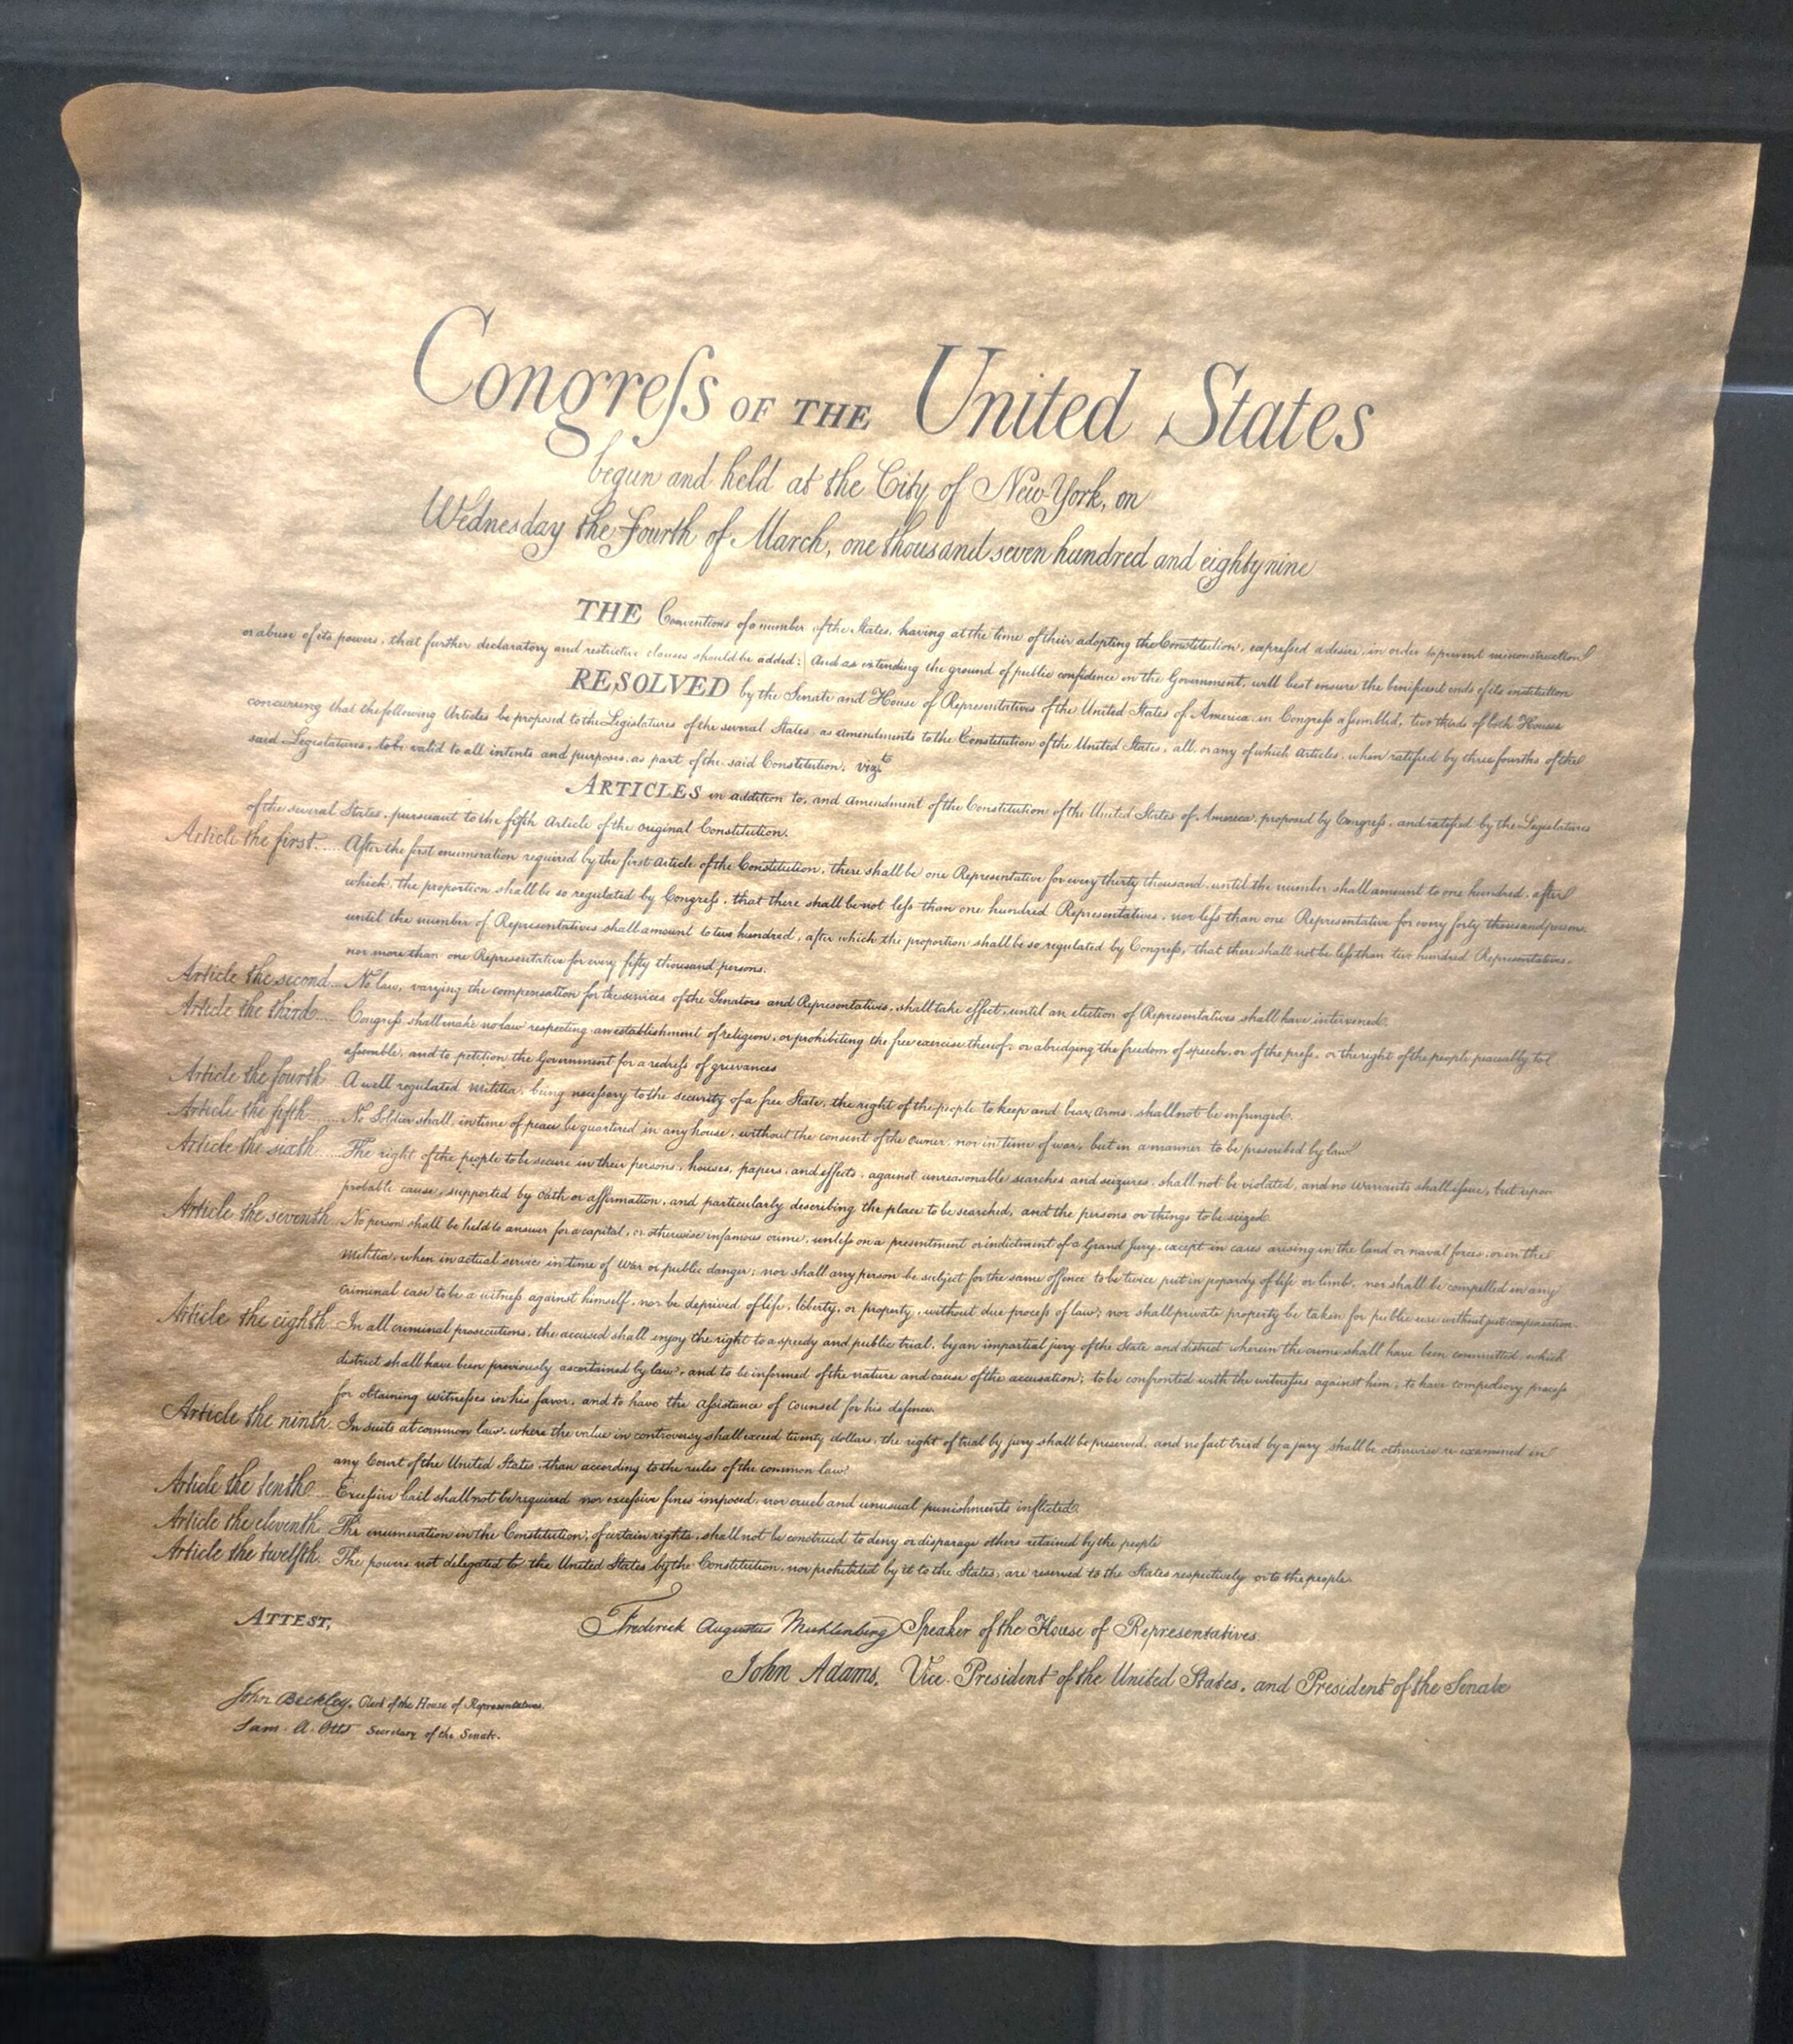 Congreſs OF THE United States
begun and held at the City of New-York, on
Wednesday the Fourth of March, one thousand seven hundred and eighty nine
THE Conventions of a number of the States, having at the time of their adopting the Constitution, expreſsed a desire, in order to prevent misconstruction
or abuse of its powers, that further declaratory and restrictive clauses should be added: And as extending the ground of public confidence in the Government, will best ensure the benificent ends of its institution
RESOLVED by the Senate and House of Representatives of the United States of America in Congreſs aſsembled, two thirds of both Houses
concurring that the following Articles be proposed to the Legislatures of the several States, as amendments to the Constitution of the United States, all or any of which Articles, when ratified by three fourths of the
said Legislatures, to be valid to all intents and purposes, as part of the said Constitution. vizt
ARTICLES in addition to, and amendment of the Constitution of the United States of America, proposed by Congreſs, and ratified by the Legislatures
of the several States, pursuant to the fifth Article of the original Constitution.
Article the first..... After the first enumeration required by the first Article of the Constitution, there shall be one Representative for every thirty thousand, until the number shall amount to one hundred, after
which, the proportion shall be so regulated by Congreſs, that there shall be not leſs than one hundred Representatives, nor leſs than one Representative for every forty thousand persons,
until the number of Representatives shall amount to two hundred, after which the proportion shall be so regulated by Congreſs, that there shall not be leſs than two hundred Representatives,
nor more than one Representative for every fifty thousand persons.
Article the second... No law, varying the compensation for the services of the Senators and Representatives, shall take effect, until an election of Representatives shall have intervened.
Article the third..... Congreſs shall make no law respecting an establishment of religion, or prohibiting the free exercise thereof; or abridging the freedom of speech, or of the preſs, or the right of the people peaceably to
aſsemble, and to petition the Government for a redreſs of grievances
Article the fourth. A well regulated Militia, being neceſsary to the security of a free State, the right of the people to keep and bear Arms, shall not be infringed.
Article the fifth..... No Soldier shall, in time of peace be quartered in any house, without the consent of the Owner, nor in time of war, but in a manner to be prescribed by law.
Article the sixth..... The right of the people to be secure in their persons, houses, papers, and effects, against unreasonable searches and seizures, shall not be violated, and no Warrants shall iſsue, but upon
probable cause, supported by Oath or affirmation, and particularly describing the place to be searched, and the persons or things to be seized.
Article the seventh. No person shall be held to answer for a capital, or otherwise infamous crime, unleſs on a presentment or indictment of a Grand Jury, except in cases arising in the land or naval forces, or in the
Militia, when in actual service in time of War or public danger; nor shall any person be subject for the same offence to be twice put in jeopardy of life or limb, nor shall be compelled in any
criminal case to be a witneſs against himself, nor be deprived of life, liberty, or property, without due proceſs of law; nor shall private property be taken for public use without just compensation.
Article the eighth. In all criminal prosecutions, the accused shall enjoy the right to a speedy and public trial, by an impartial jury of the State and district wherein the crime shall have been committed, which
district shall have been previously ascertained by law, and to be informed of the nature and cause of the accusation; to be confronted with the witneſses against him; to have compulsory proceſs
for obtaining witneſses in his favor, and to have the Aſsistance of Counsel for his defence.
Article the ninth. In suits at common law, where the value in controversy shall exceed twenty dollars, the right of trial by jury shall be preserved, and no fact tried by a jury shall be otherwise re-examined in
any Court of the United States, than according to the rules of the common law.
Article the tenth.... Exceſsive bail shall not be required nor exceſsive fines imposed, nor cruel and unusual punishments inflicted.
Article the eleventh. The enumeration in the Constitution, of certain rights, shall not be construed to deny or disparage others retained by the people
Article the twelfth. The powers not delegated to the United States by the Constitution, nor prohibited by it to the States, are reserved to the States respectively or to the people.
ATTEST,
Frederick Augustus Muhlenberg Speaker of the House of Representatives.
John Adams, Vice-President of the United States, and President of the Senate
John Beckley, Clerk of the House of Representatives.
Sam. A. Otis Secretary of the Senate.